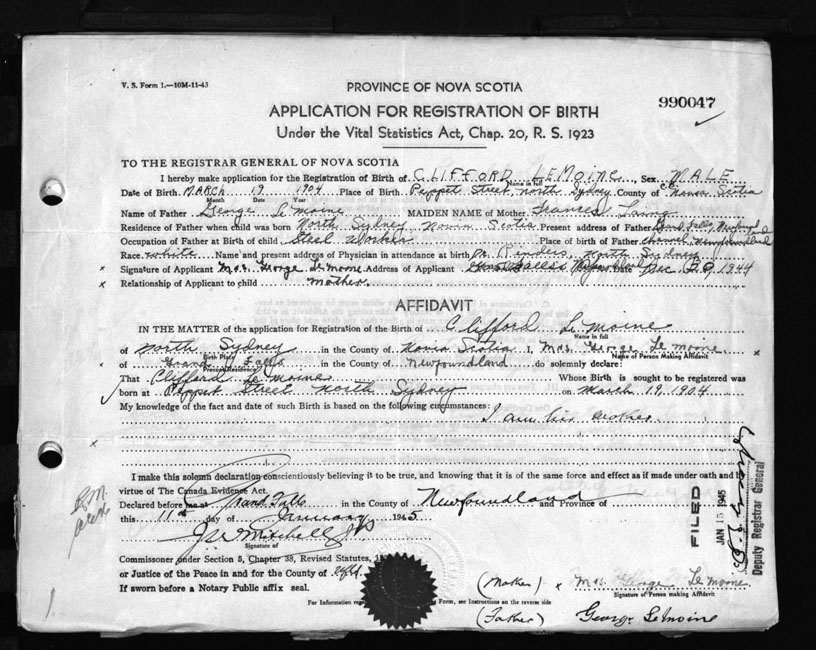 V. S. Form 1.—10M-11-43
PROVINCE OF NOVA SCOTIA
990047
APPLICATION FOR REGISTRATION OF BIRTH
Under the Vital Statistics Act, Chap. 20, R. S. 1923
TO THE REGISTRAR GENERAL OF NOVA SCOTIA
I hereby make application for the Registration of Birth of CLIFFORD LEMOINE Sex MALE
Name in full
Date of Birth MARCH 19 1904 Place of Birth Peppet Street, North Sydney County of C.B. Nova Scotia
Month Date Year
Name of Father George Le Moine MAIDEN NAME of Mother Frances
Residence of Father when child was born North Sydney Novia Scotia Present address of Father Grand Falls, Newfoundland
Occupation of Father at Birth of child Steel Worker Place of Birth of Father Channel, Newfoundland
Race white Name and present address of Physician in attendance at birth North Sydney
x Signature of Applicant Mrs. George Le Moone Address of Applicant Grand Falls Date Dec. 1944
x Relationship of Applicant to child mother.
AFFIDAVIT
IN THE MATTER of the application for Registration of the Birth of Clifford Le Moine
Name in full
of North Sydney in the County of Novia Scotia I, Mrs. George Le Moone
Birth Place Name of Person Making Affidavit
x of Grand Falls in the County of Newfoundland do solemnly declare: x
Present Residence
That Clifford Le Moine Whose Birth is sought to be registered was
born at Peppet Street North Sydney on March 19, 1904
My knowledge of the fact and date of such Birth is based on the following circumstances:
I am his mother.
x
I make this solemn declaration conscientiously believing it to be true, and knowing that it is of the same force and effect as if made under oath and by
virtue of The Canada Evidence Act.
Declared before me at Grand Falls in the County of Newfoundland and Province of
this 11th day of January 1945
J W Mitchell J.P.
Signature of
Commissioner under Section 5, Chapter 38, Revised Statutes,
or Justice of the Peace in and for the County of
If sworn before a Notary Public affix seal.
FILED
JAN 15 1945
Deputy Registrar General
(Mother) x Mrs. George Le Moone
Signature of Person making Affidavit
For Information Form, see Instructions on the reverse side
(Father) George Lemoine